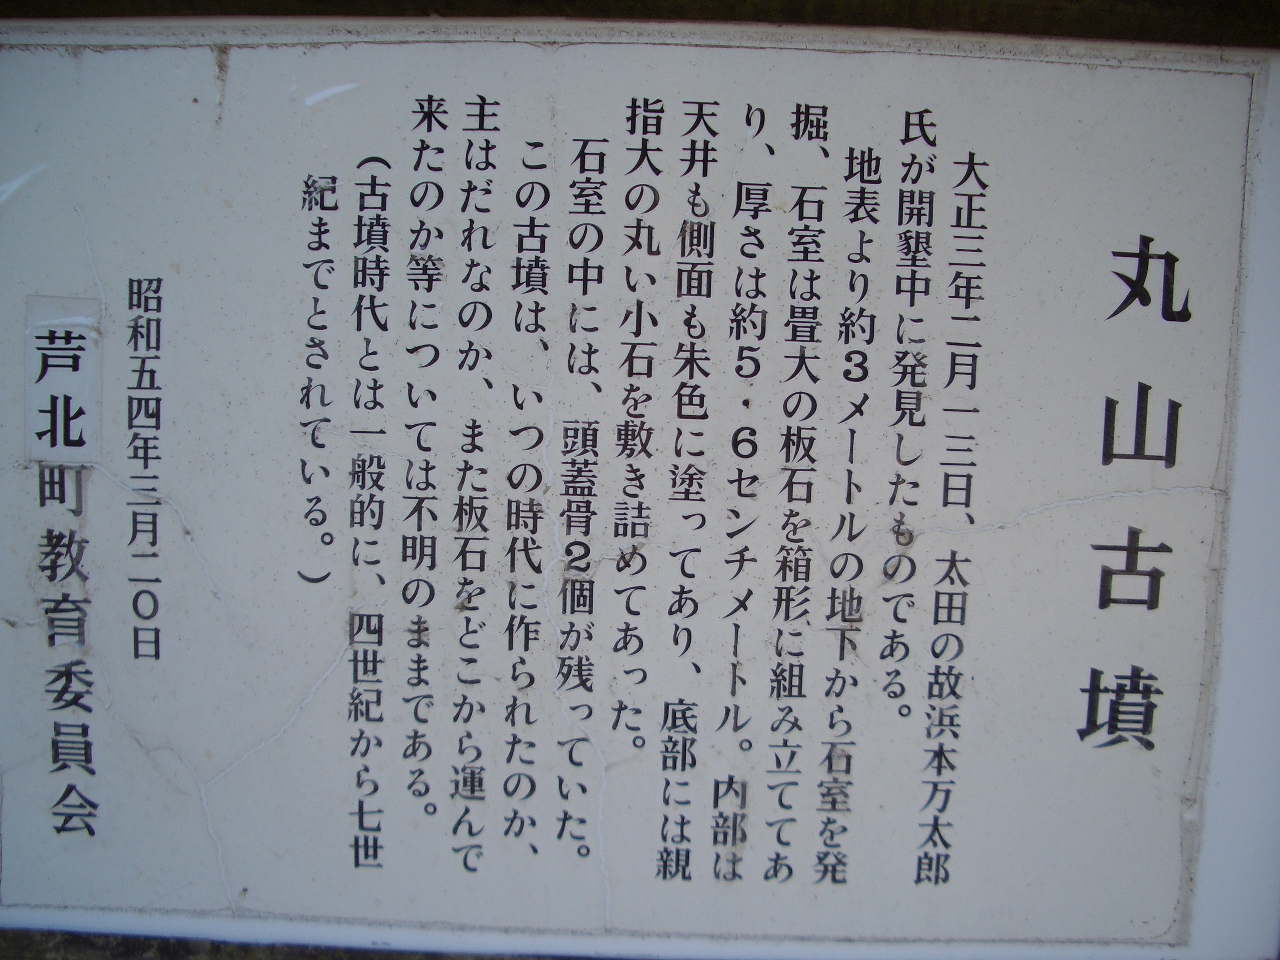 丸山古墳
大正三年二月一三日、太田の故浜本万太郎
氏が開墾中に発見したものである。
地表より約3メートルの地下から石室を発
掘、石室は畳大の板石を箱形に組み立ててあ
り、厚さは約5・6センチメートル。内部は
天井も側面も朱色に塗ってあり、底部には親
指大の丸い小石を敷き詰めてあった。
石室の中には、頭蓋骨2個が残っていた。
この古墳は、いつの時代に作られたのか、
主はだれなのか、また板石をどこから運んで
来たのか等については不明のままである。
(古墳時代とは一般的に、四世紀から七世
紀までとされている。)
昭和五四年三月二〇日
芦北町教育委員会